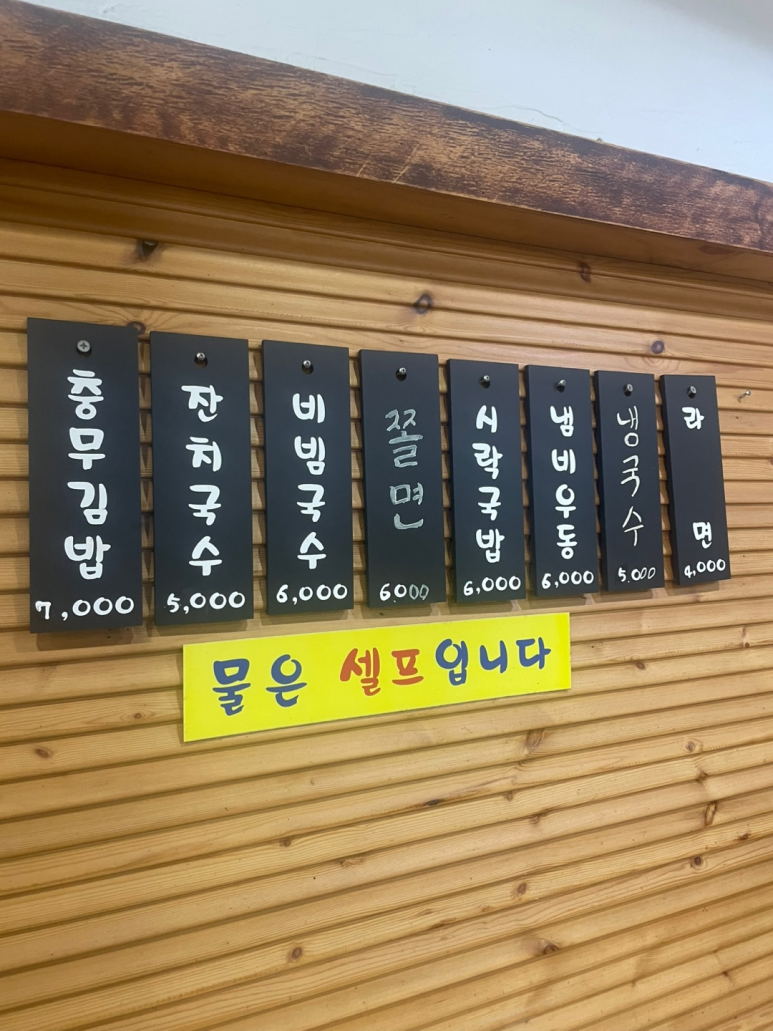 충무김밥
7,000
잔치국수
5,000
비빔국수
6,000
쫄면
6000
시락국밥
6,000
냄비우동
6,000
냉국수
5.000
라면
4,000
물은 셀프입니다